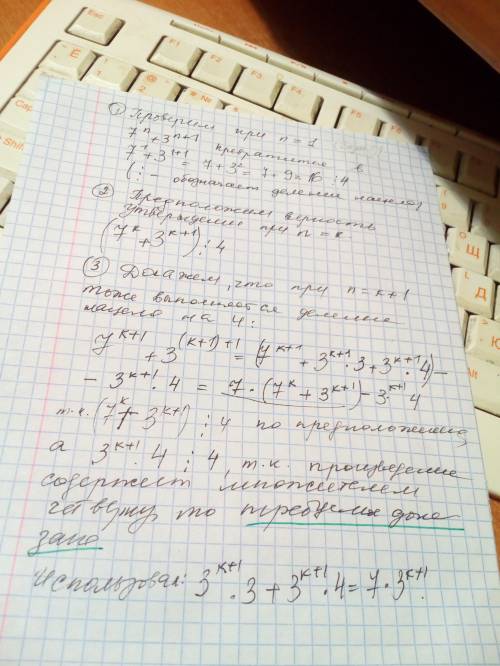 ① Проверим при n = 1
7ⁿ + 3ⁿ⁺¹ превратится в
7¹ + 3¹⁺¹ = 7 + 3² = 7 + 9 = 16 ⋮ 4
(⋮ - обозначает деление нацело)
② Предположим верность
утверждения при n = k
(7ᵏ + 3ᵏ⁺¹) ⋮ 4
③ Докажем, что при n = k + 1
тоже выполняется деление
нацело на 4:
7ᵏ⁺¹ + 3⁽ᵏ⁺¹⁾⁺¹ = (7ᵏ⁺¹ + 3ᵏ⁺¹·3 + 3ᵏ⁺¹·4) -
- 3ᵏ⁺¹·4 = 7·(7ᵏ + 3ᵏ⁺¹) - 3ᵏ⁺¹·4
т.к. (7ᵏ + 3ᵏ⁺¹) ⋮ 4 по предположению,
а 3ᵏ⁺¹·4 ⋮ 4, т.к. произведение
содержет множителем
четверку, то требуемое дока
зано
Использовал: 3ᵏ⁺¹·3 + 3ᵏ⁺¹·4 = 7·3ᵏ⁺¹.
Esc
F1
F2
F3
F4
F5
Ё